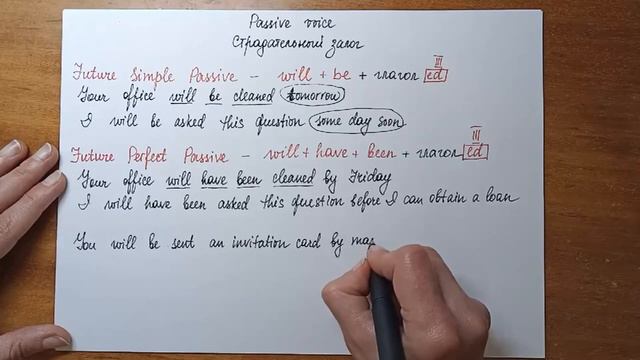 Passive voice
Страдательный залог
III
Future Simple Passive – will + be + глагол ed
Your office will be cleaned tomorrow
I will be asked this question some day soon
III
Future Perfect Passive – will + have + been + глагол ed
Your office will have been cleaned by Friday
I will have been asked this question before I can obtain a loan
You will be sent an invitation card by